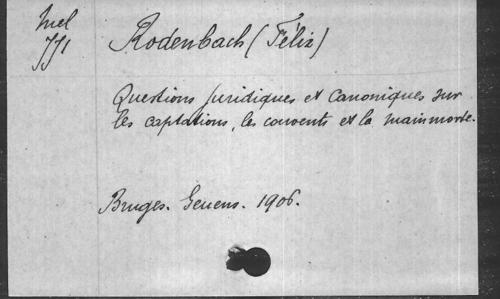 Mel
Rodenbach (Félix)
Questions juridiques et canoniques sur
les captations, les couvents et la mainmorte.
Bruges. Geuens. 1906.